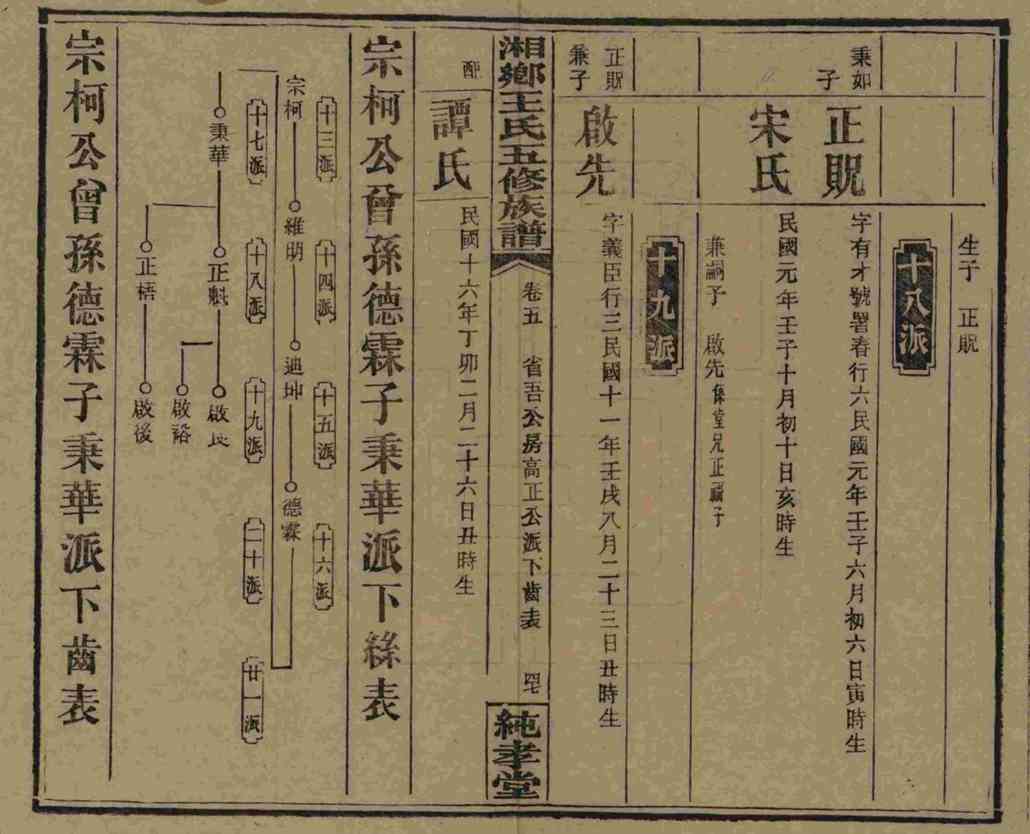 生子 正貺
十八派
秉如子
正貺
字有才號署春行六民國元年壬子六月初六日寅時生
宋氏
民國元年壬子十月初十日亥時生
兼祠子 啟先係堂兄正福子
十九派
正貺兼子
啟先
字義臣行三民國十一年壬戌八月二十三日丑時生
湘鄉王氏五修族譜
卷五 省吾公房高正公派下齒表
純孝堂
配
譚氏
民國十六年丁卯二月二十六日丑時生
宗柯公曾孫德霖子秉華派下絲表
十三派
十四派
十五派
十六派
宗柯
維明
迪坤
德霖
十七派
十八派
十九派
二十派
廿一派
秉華
正魁
啟民
啟裕
正梧
啟後
宗柯公曾孫德霖子秉華派下齒表